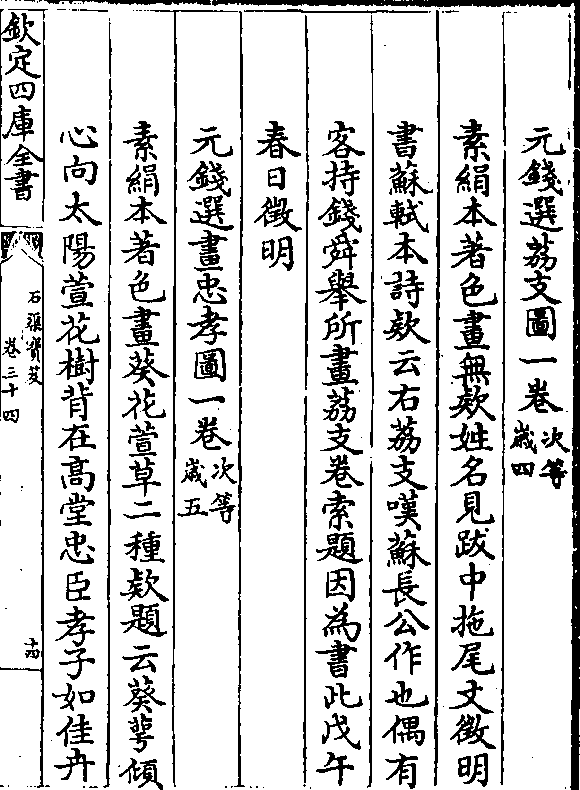 元錢選荔支圖一卷次等歲四
素絹本著色畫無欵姓名見跋中拖尾文徵明
書蘇軾本詩欵云右荔支嘆蘇長公作也偶有
客持錢舜舉所畫荔支卷索題因為書此戊午
春日徵明
元錢選畫忠孝圖一卷次等歲五
素絹本著色畫葵花萱草二種欵題云葵萼傾
心向太陽萱花樹背在高堂忠臣孝子如佳卉
欽定四庫全書
石渠寶笈
卷三十四
十四